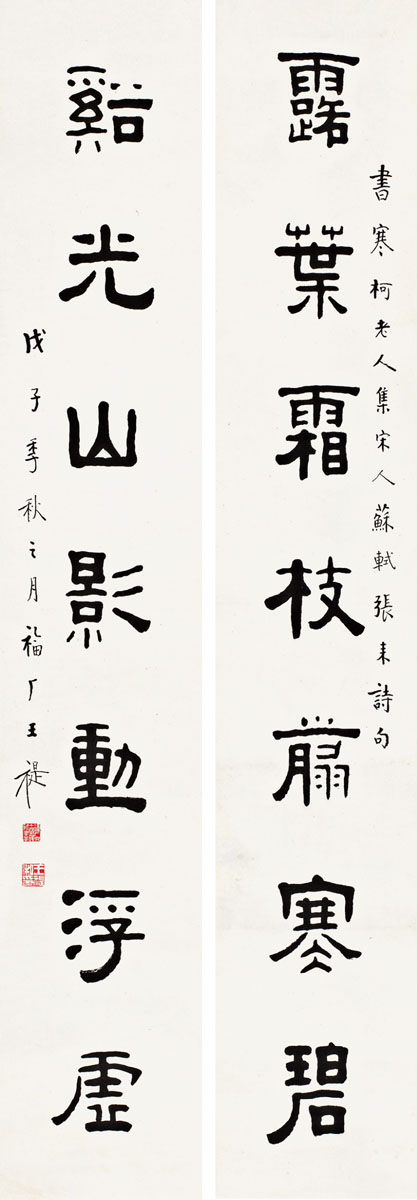 書寒柯老人集宋人蘇軾張耒詩句
露葉霜枝翦寒碧
谿光山影動浮虛
戊子季秋之月福厂王禔